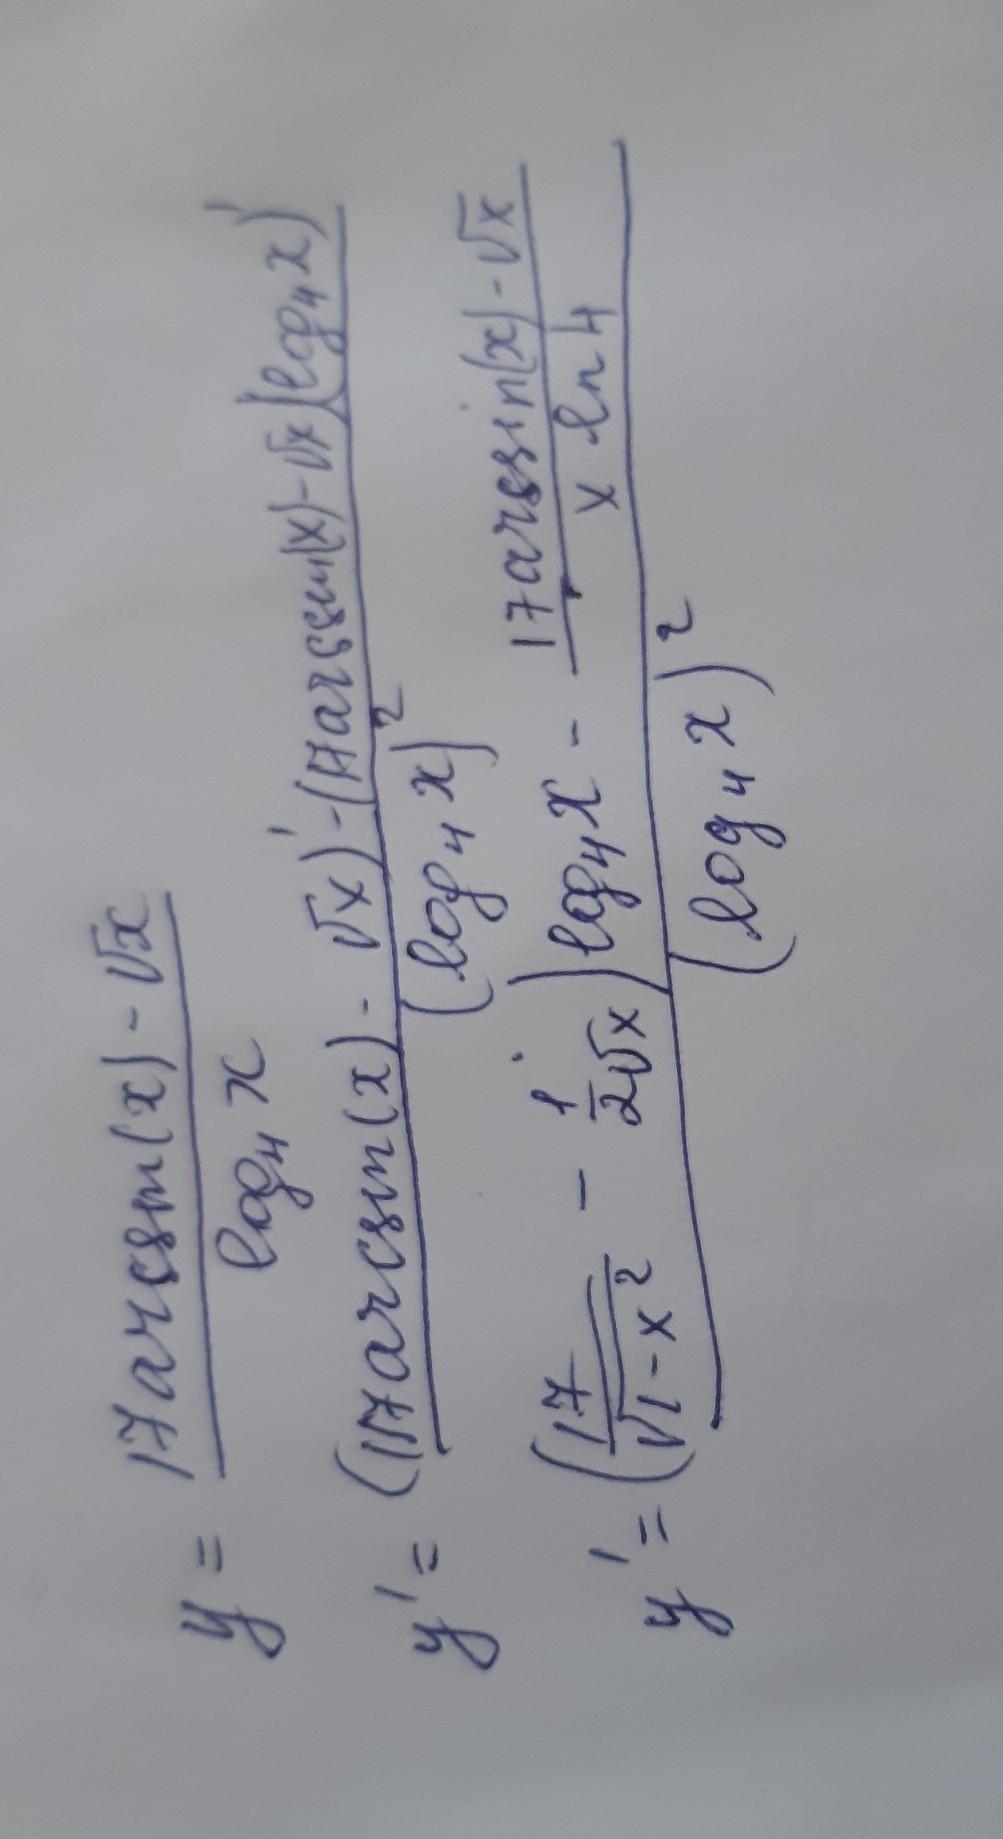 y = (17arcsin(x) - √x) / (log₄ x)
y' = ((17arcsin(x) - √x)' - (17arcsin(x) - √x)(log₄ x)') / (log₄ x)²
y' = ((17/√(1-x²) - 1/(2√x)) log₄ x - (17arcsin(x) - √x)/(x ln 4)) / (log₄ x)²